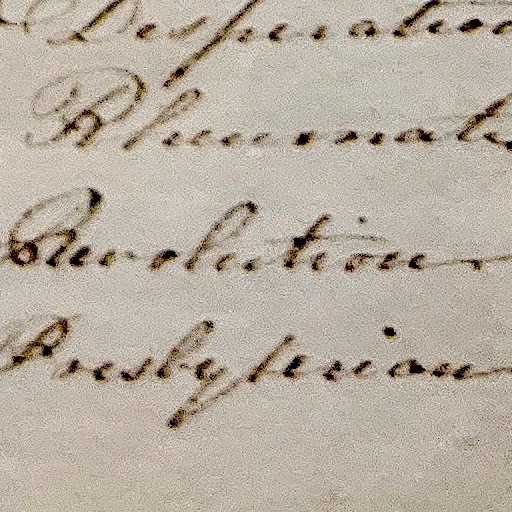 Desperation
Rheumat
Revolution
Presbyterian